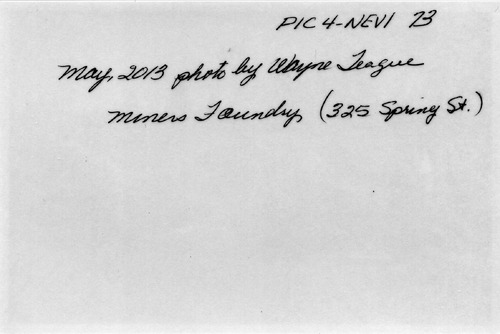 PIC 4-NEVI 73
May, 2013 photo by Wayne Teague
Miners Foundry (325 Spring St.)